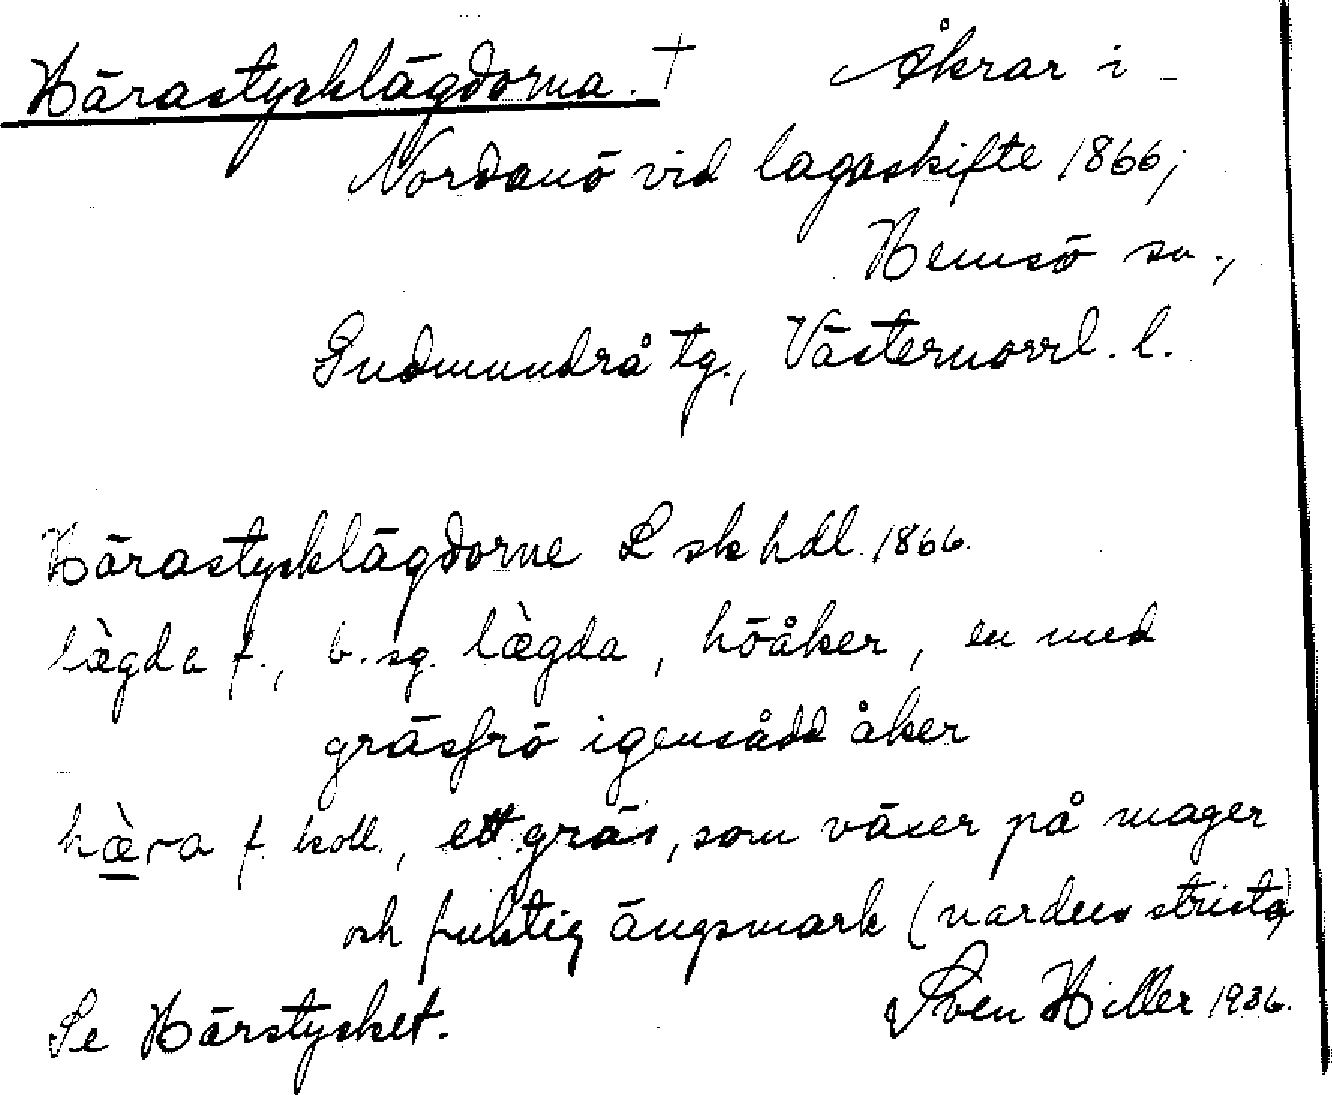 Härastycklägdorna. † Åkrar i
Nordanö vid lagaskifte 1866;
Hemsö sn.,
Gudmundrå tg., Västernorrl. l.
Härastycklägdorne L sk hdl. 1866.
læ̀gda f., b. sg. læ̀gda, höåker, en med
gräsfrö igensådd åker
hæ̀ra f. koll., ett gräs, som växer på mager
och fuktig ängsmark (nardus stricta)
Se Härstycket. Sven Hiller 1936.